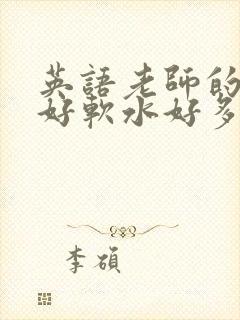 英語老師的
好軟水好多
李碩